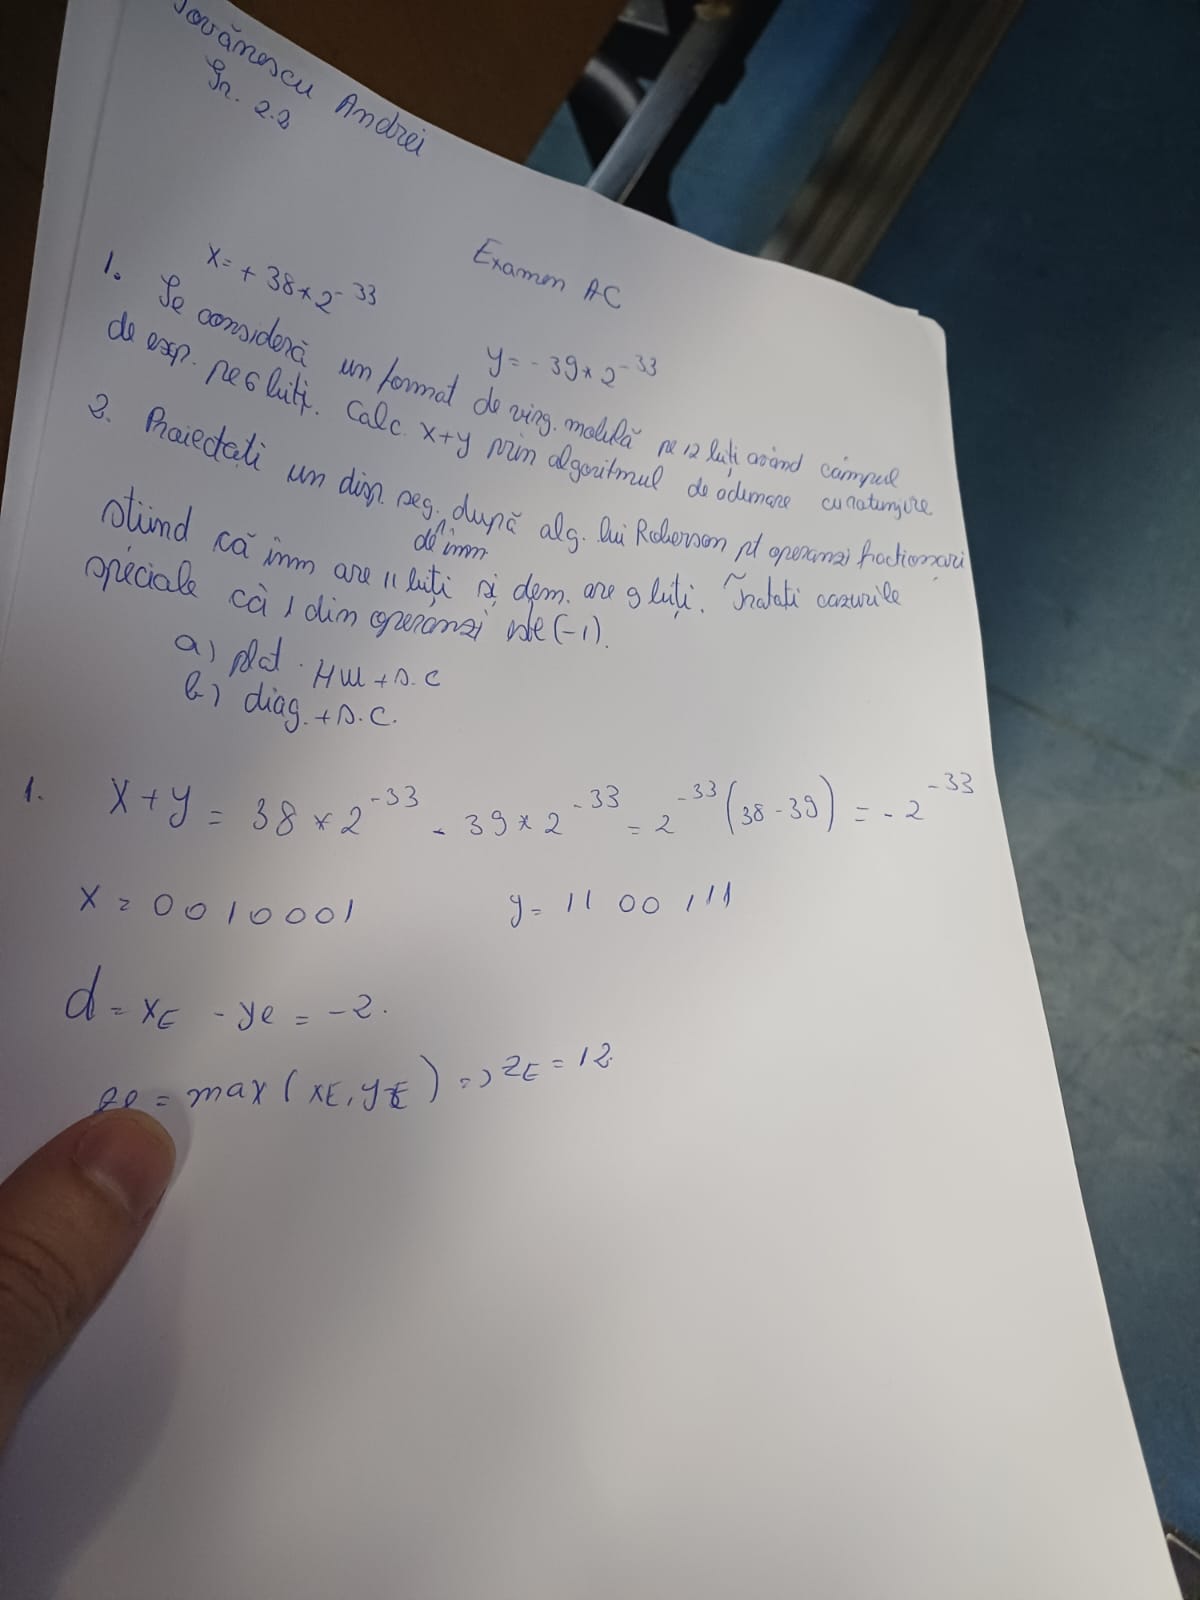 Iovănescu Andrei
Gr. 2.2
Examen AC
x = + 38 * 2^-33
y = - 39 * 2^-33
1. Se consideră un format de virg. mobilă pe 12 biți având câmpul
de exp. pe 6 biți. Calc. x+y prin algoritmul de adunare cu rotunjire
2. Proiectați un disp. seg. de înm după alg. lui Roberson pt operanzi fractionari
știind că înm are 11 biți și dem. are 9 biți. Tratați cazurile
speciale că 1 din operanzi este (-1).
a) plat. HW + S.C
b) diag. + S.C.
1. X + y = 38 * 2^-33 - 39 * 2^-33 = 2^-33 (38 - 39) = - 2^-33
X = 0010001 y = 1100111
d = XE - ye = -2.
ze = max (XE, yE) => ZE = 12